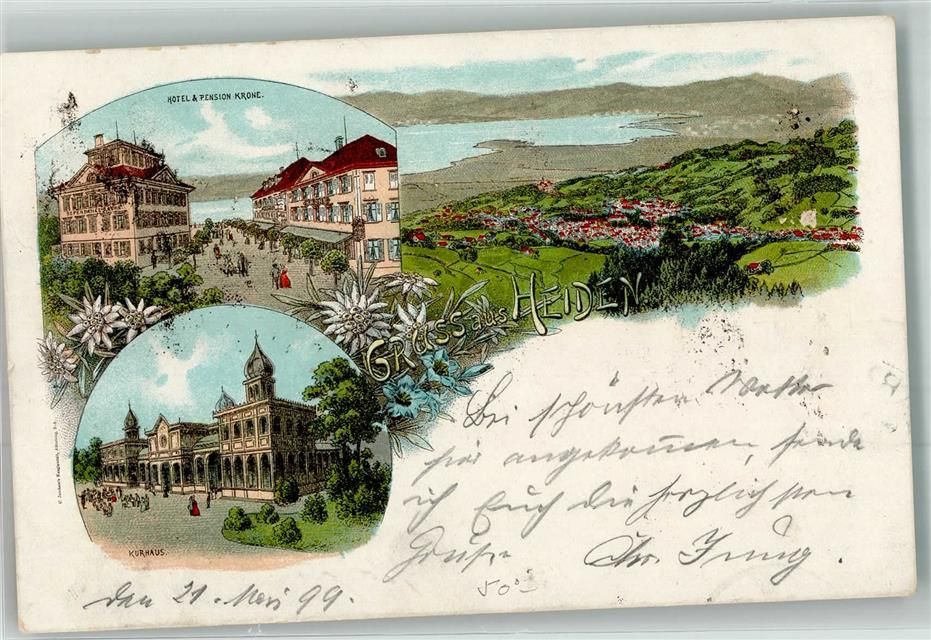 HOTEL & PENSION KRONE.
GRUSS aus HEIDEN
KURHAUS.
Bei schönstem Wetter
hier angekommen, sende
ich Euch die herzlichsten
Grüsse. Chr. Jung.
den 21. Mai 99.
50